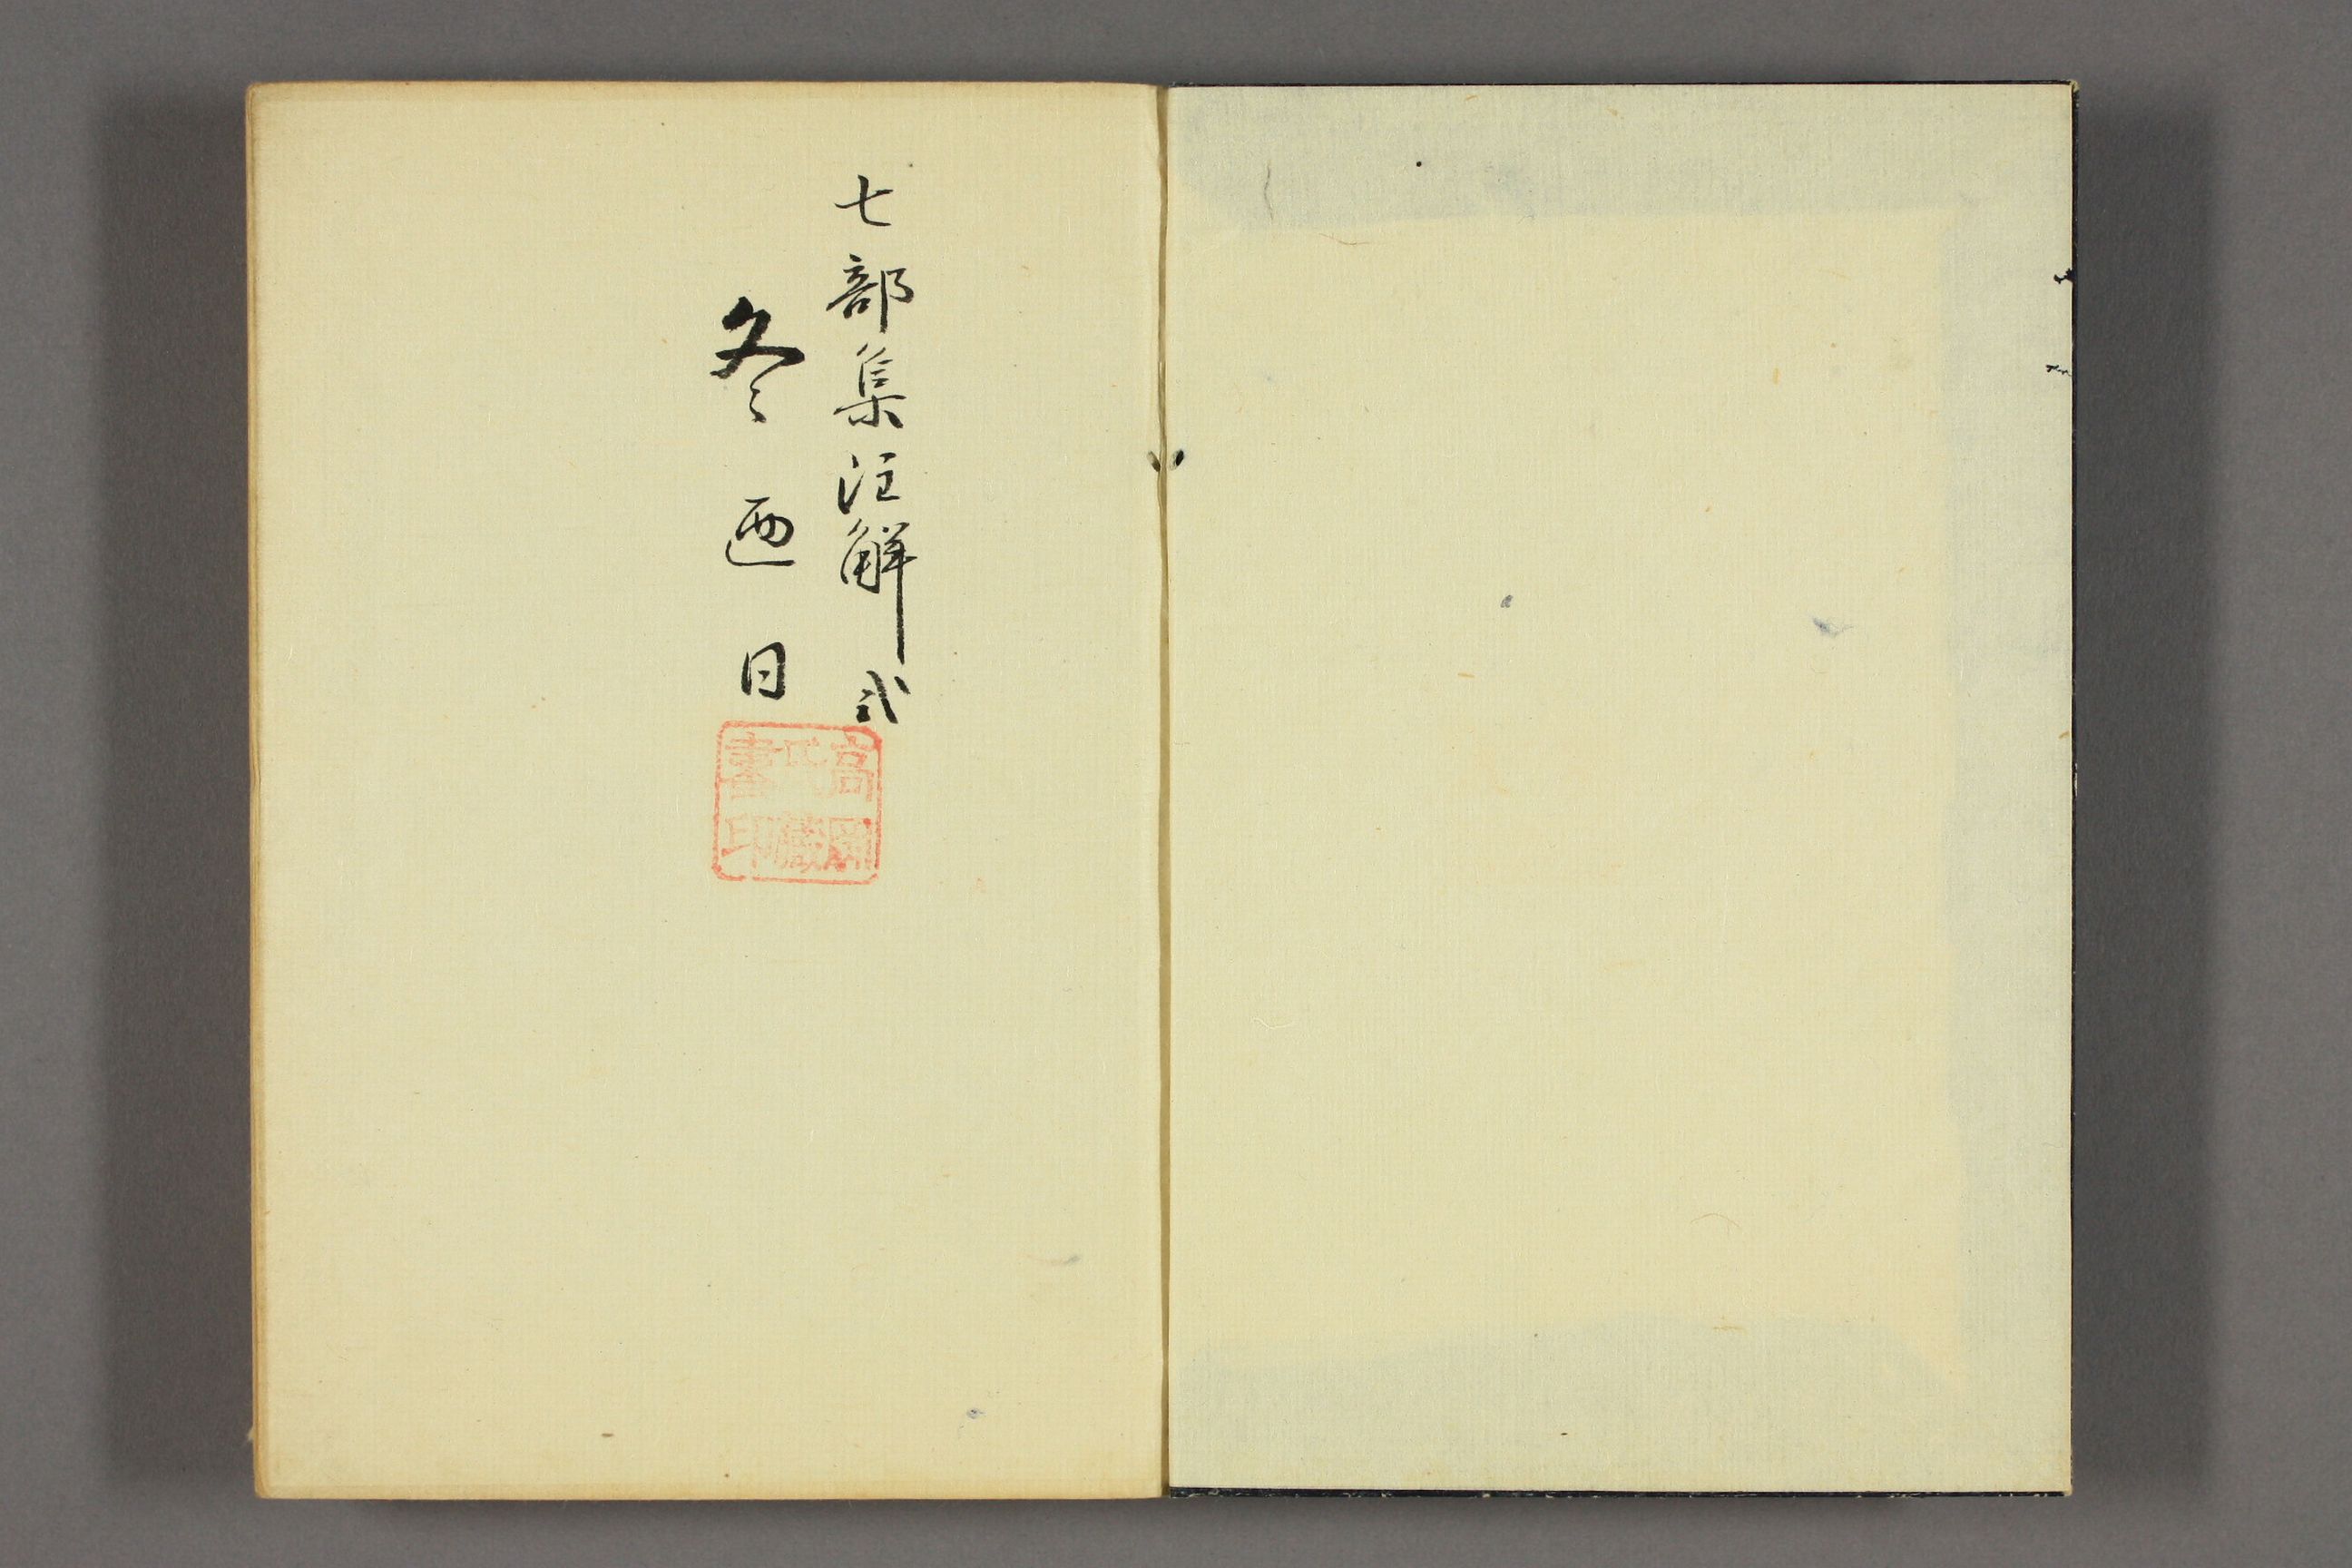 七部集注解 弍
冬迺日
高岡
氏藏
書印